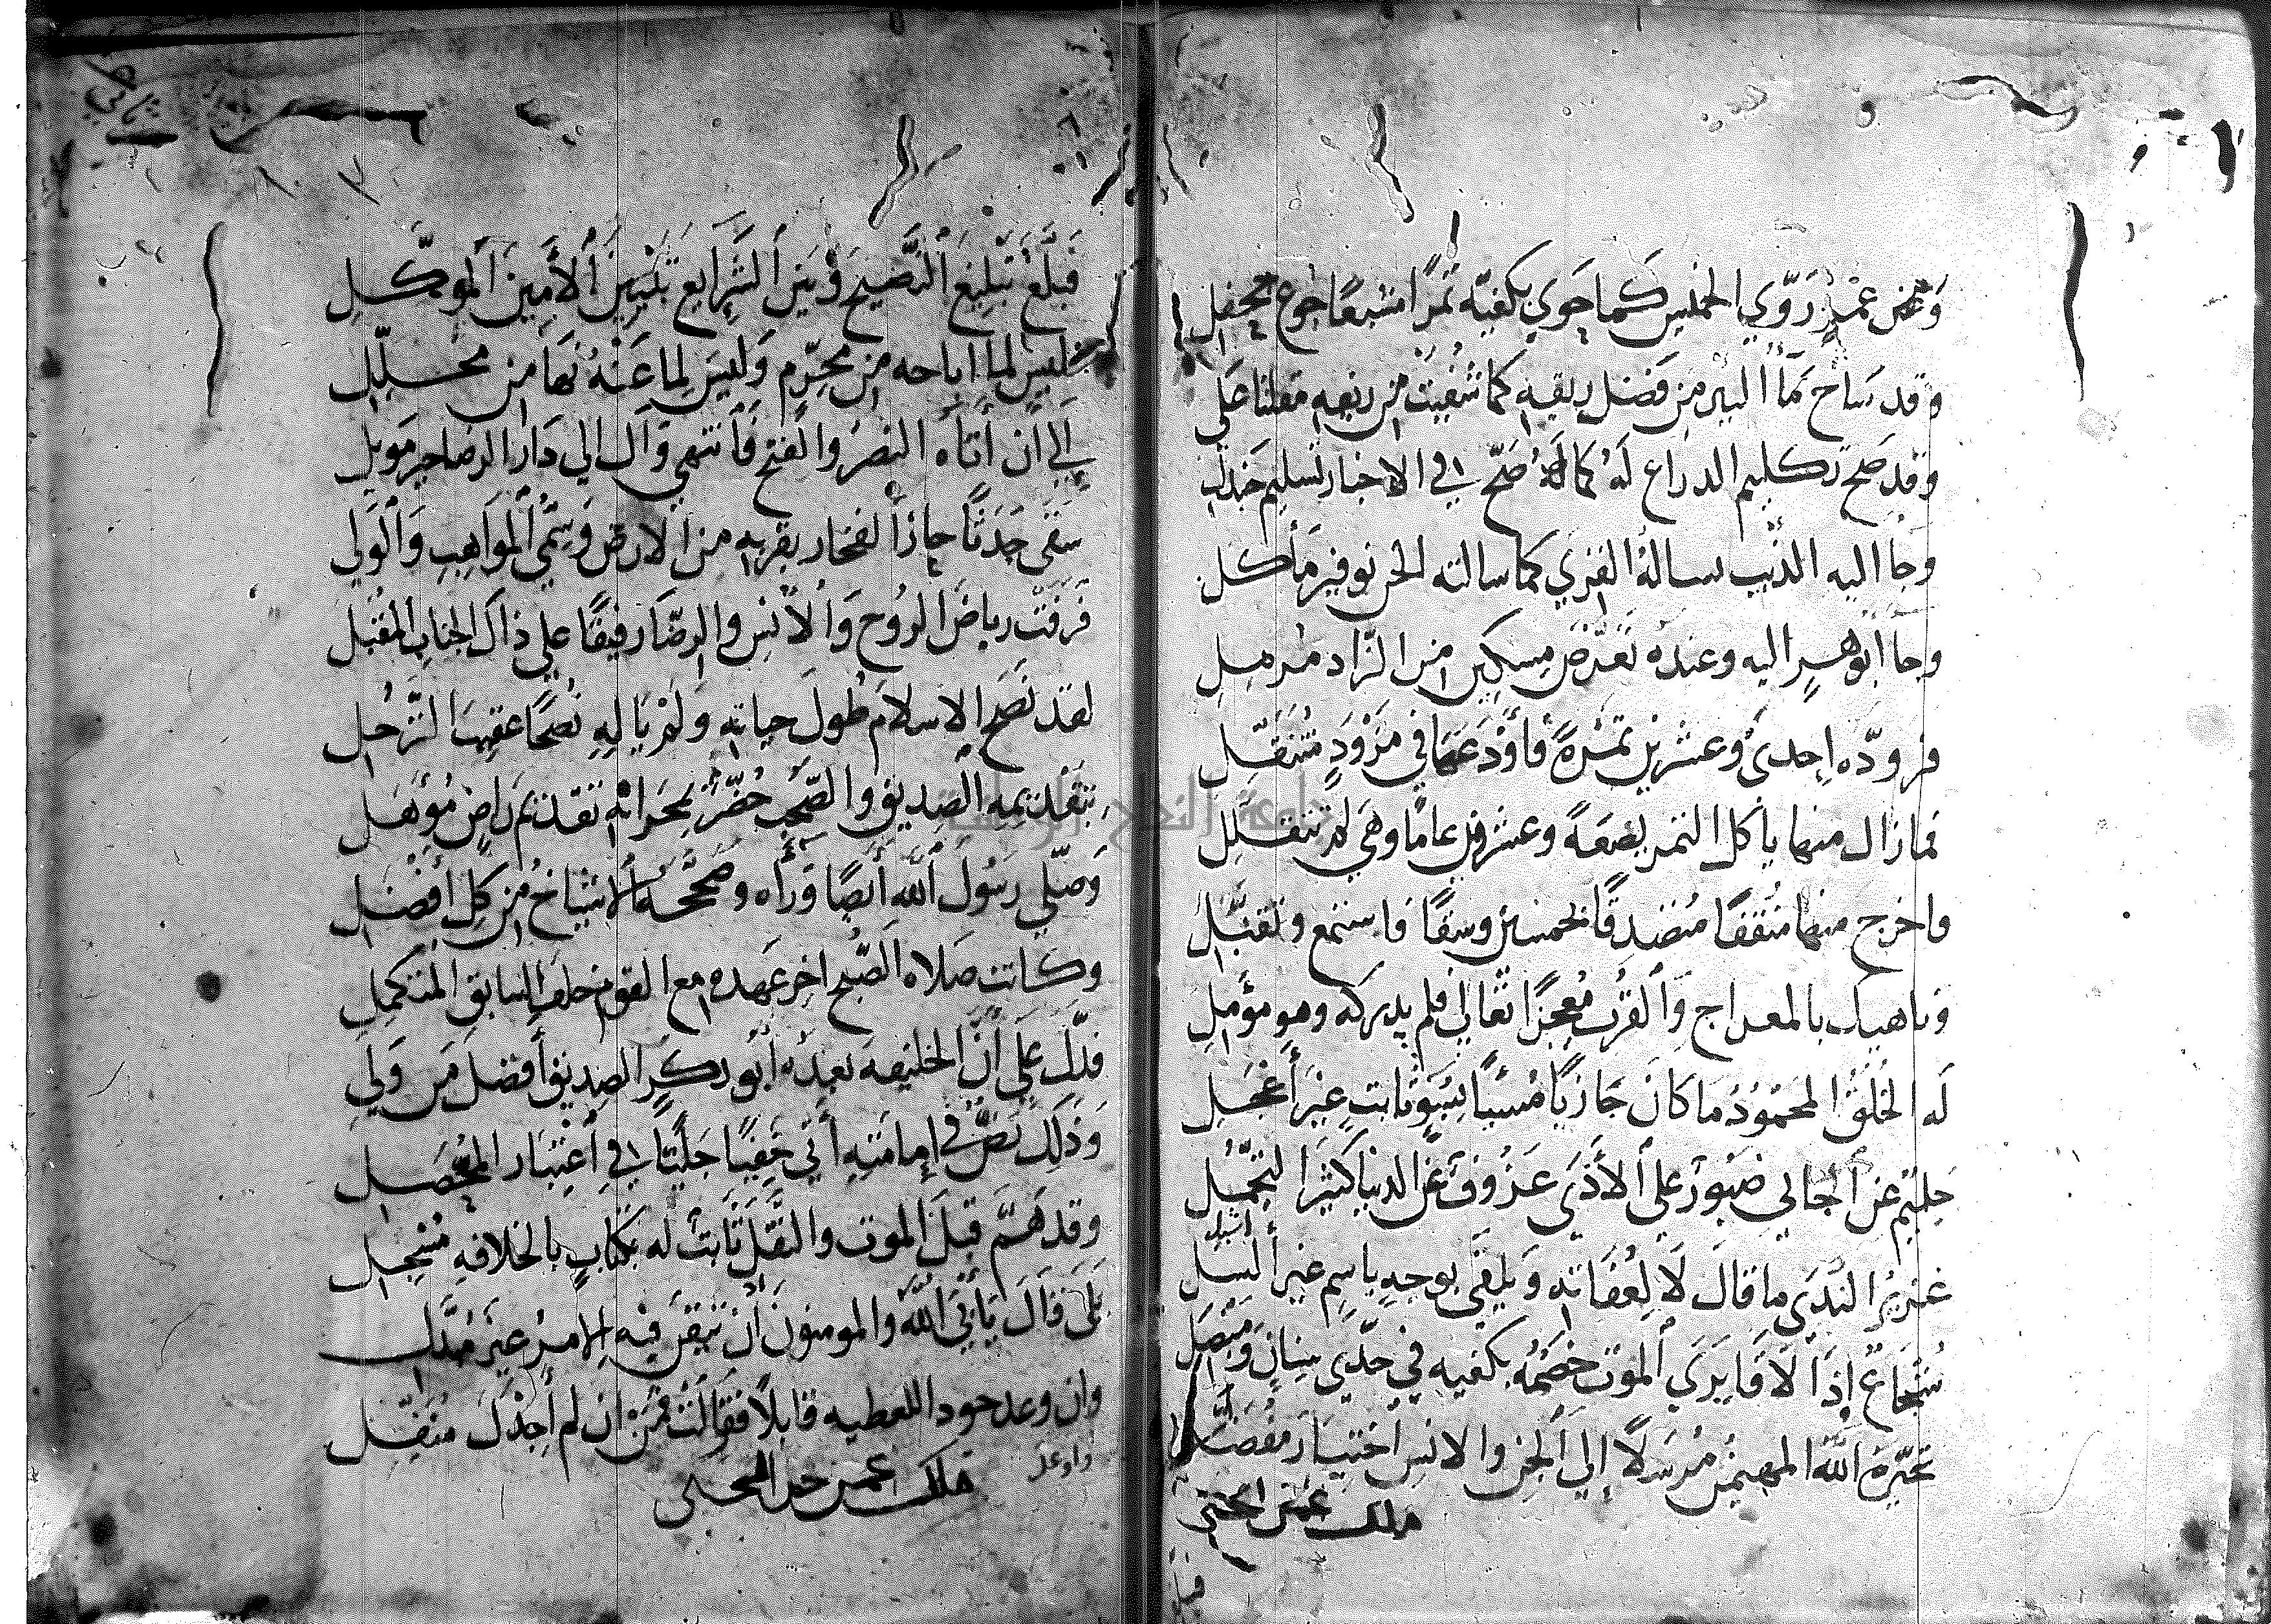 وعن عمر روي الخميس كما جوي بكفيه تمرا مشبعا جوع جحفل
وقد ساح ماء البير من فضل ريقه كما شفيت من ريقه مقلتا علي
وقد صح تكليم الدراع له كما له صح في الاخبار تسليم جندل
وجا اليه الذيب يساله القري كما سالته الجن توفير مأكل
وجا ابو هر اليه وعنده تعرض مسكين من الزاد مرمل
فزوده إحدى وعشرين تمرة فأودعها في مزود متنقل
فما زال منها ياكل التمر بضعة وعشرين عاما وهي لم تتقلل
واخرج منها منفقا متصدقا بخمسين وسقا فاستمع وتقبل
وناهيك بالمعراج والقرب معجزا تعالي فلم يدركه وهو مؤمل
له الخلق المحمود ما كان جازيا مسيئا بسوء ثابت غير أعجل
حليم عن الجاني صبور على الأذى عزوف عن الدنيا كثير التجمل
غزير الندى ما قال لا لعفاته ويلقى بوجه باسم غير أبسل
شجاع إذا لاقا يرى الموت خصمه بكفيه في حدى سنان ومنصل
تخيره الله المهيمن مرسلا إلى الجن والانس اختيار مفضل
ملك عمر
فبلغ
فبلغ تبليغ النصيح وبين الشرايع تبيين الأمين الموكل
فليس لما اباحه من محرم وليس لما عنه نها من محلل
إلى ان أتاه النصر والفتح فانتهي وآل الي دار الرضا خير مويل
سقى جدثا حاز الفخار بقربه من الارض وسمي المواهب والولي
فرفت رياض الروح والانس والرضا رفيقا علي ذاك الجناب المقبل
لقد نصح الاسلام طول حياته ولم ياله نصحا عقيب الترحل
بتقديمه الصديق والصحب حضر بمحرابه تقديم راض مؤهل
وصلي رسول الله أيضا وراه وصححه الاشياخ من كل أفضل
وكانت صلاه الصبح اخر عهده مع القوم خلف السابق المتكمل
فدل على أن الخليفه بعده أبو بكر الصديق أفضل من ولي
وذلك نص في إمامته أتى خفيا جليا في اعتبار المحصل
وقد هم قبل الموت والنقل ثابت له بكتاب بالخلافه مسجل
بلى قال يأبى الله والمومنون أن تبقى فيه الامر غير مبدل
وان وعد جود العطيه قابلا فقالت فمن ان لم أجدك منفل
ملك عمر